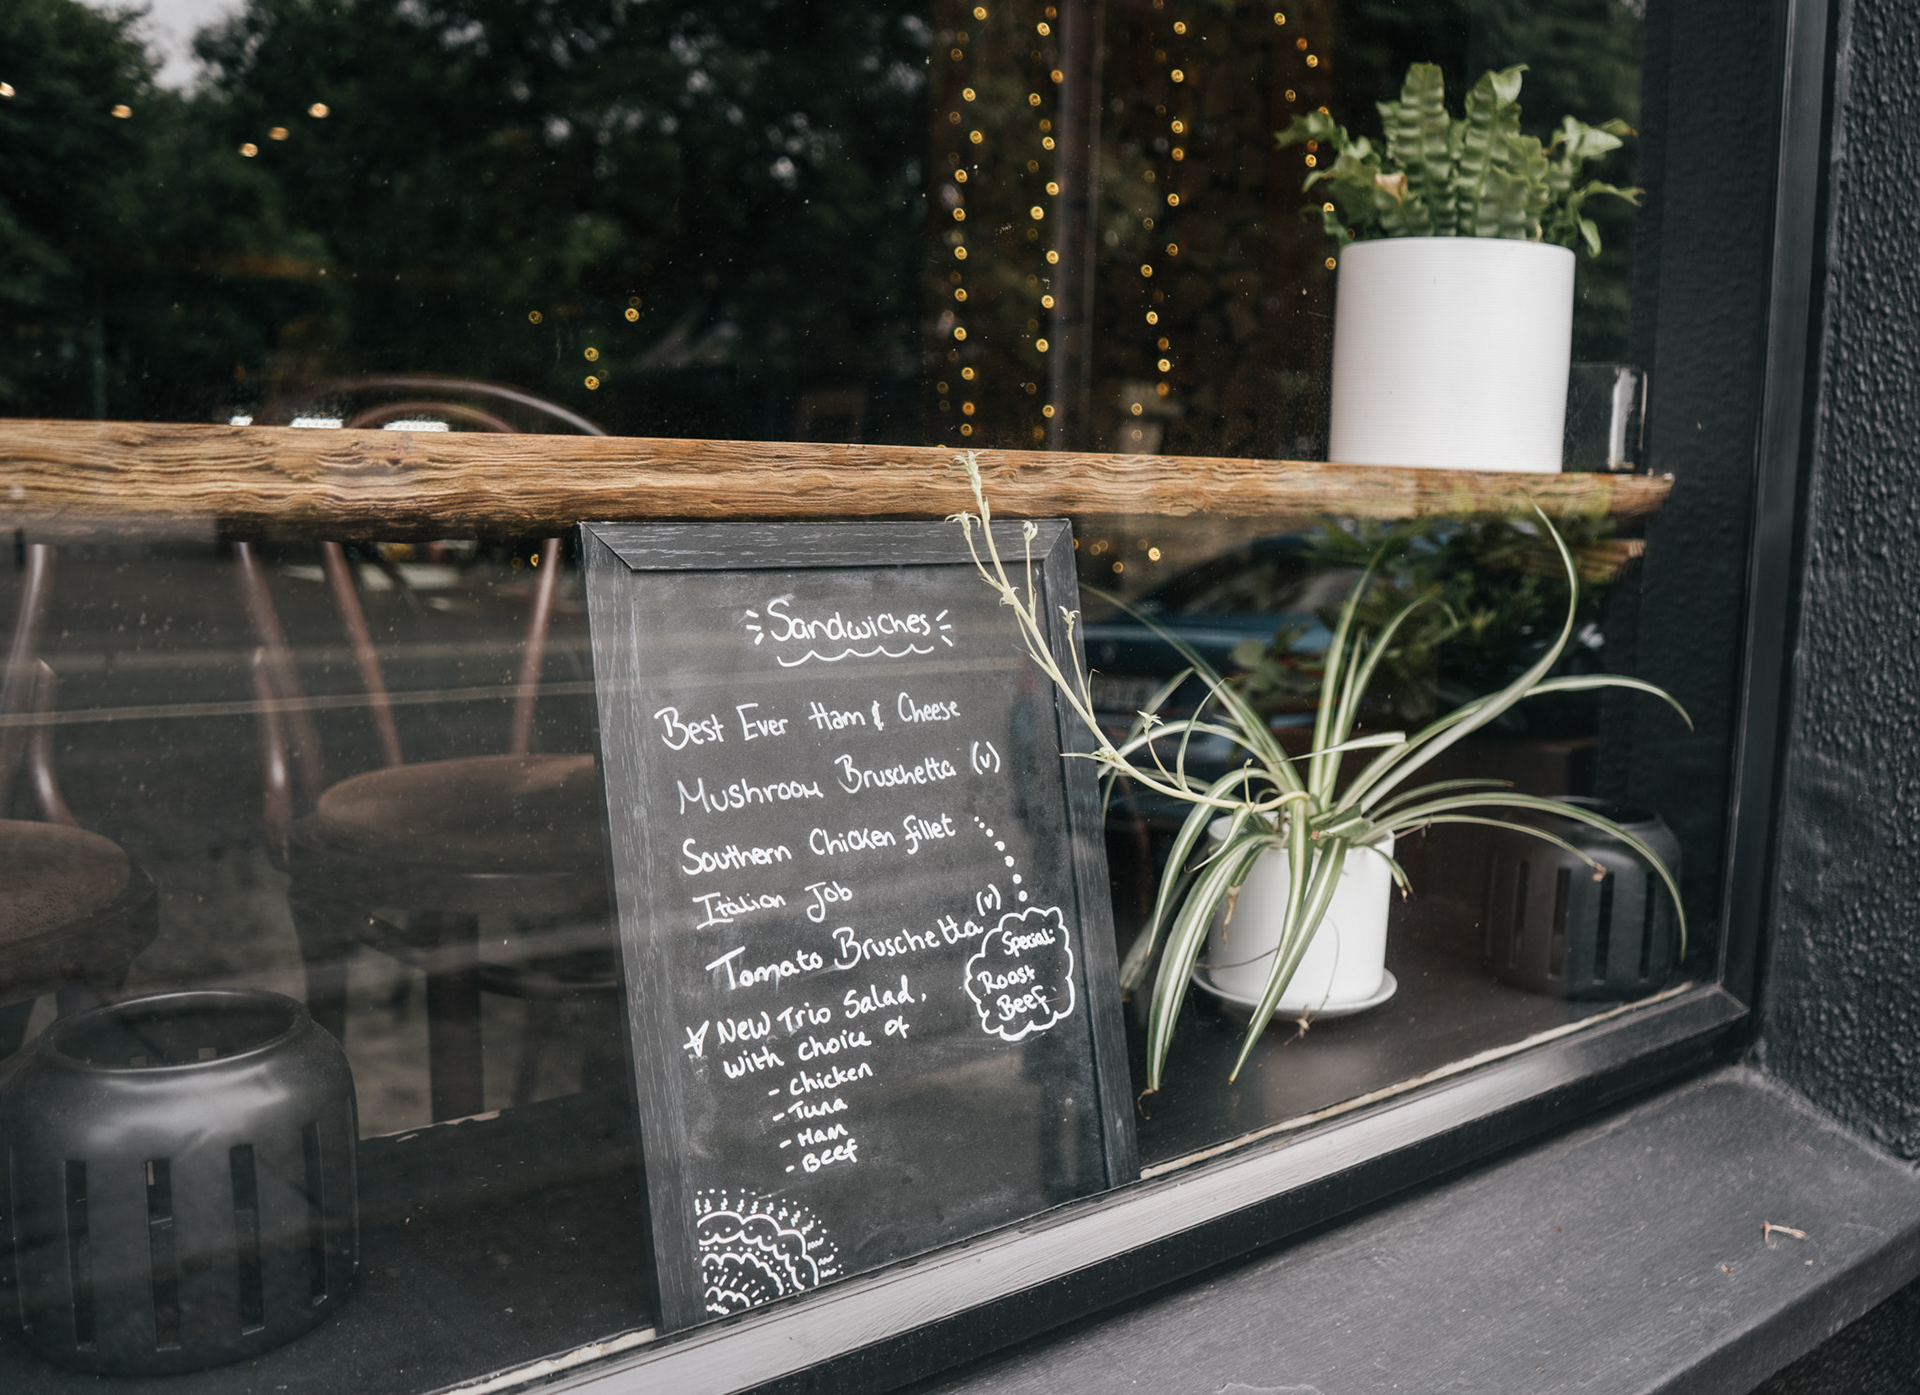 Sandwiches
Best Ever Ham & Cheese
Mushroom Bruschetta (v)
Southern Chicken fillet
Italian Job
Tomato Bruschetta (v)
Special:
Roast
Beef
New Trio Salad,
with choice of
- Chicken
- Tuna
- Ham
- Beef